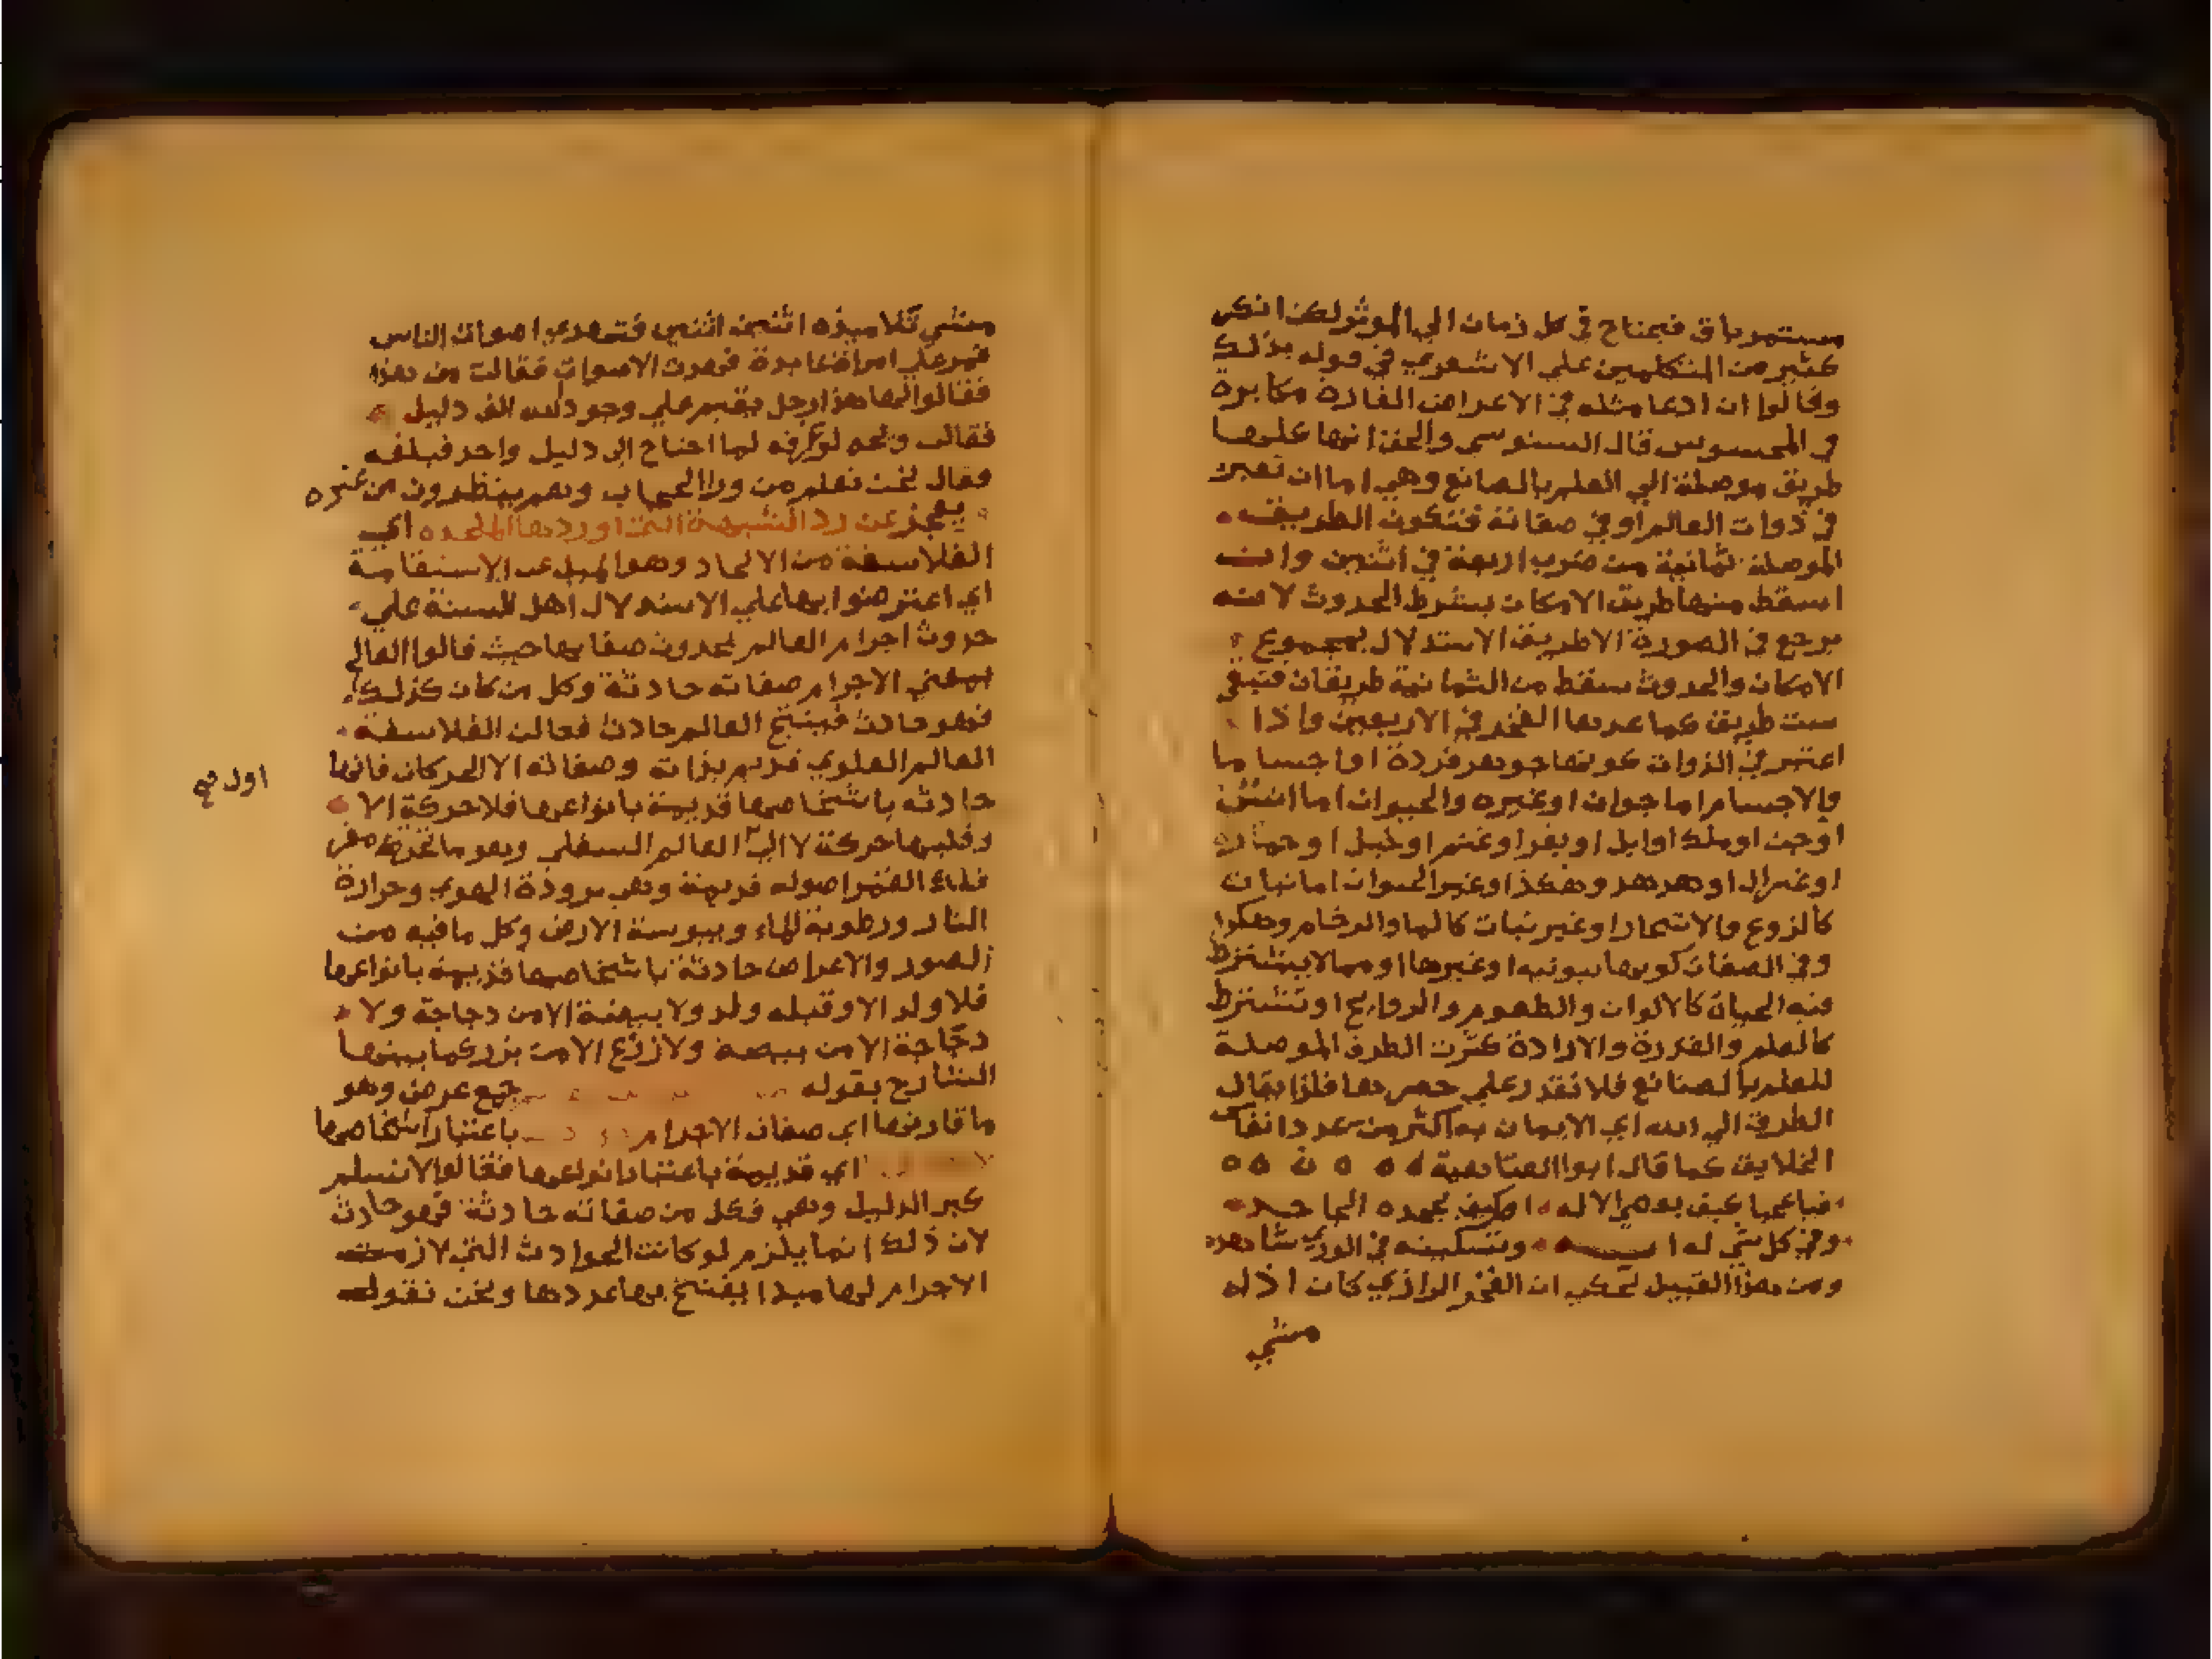 مستمر باق فيحتاج في كل زمان الي الموثر لكن انكر
كثير من المتكلمين علي الاشعري في قوله بذلك
وقالوا ان ادعا مثله في الاعراض القارة مكابرة
في المحسوس قال السنوسي والحق انها علمها
طريق موصلة الي العلم بالصانع وهي اما ان تعتبر
في ذوات العالم او في صفاته فتكون الطريق
الموصلة ثمانية من ضرب اربعة في اثنين وان
اسقط منها طريق الامكان بشرط الحدوث لانه
يرجع في الصورة الا طريق الاستدلال بمجموع
الامكان والحدوث سقط من الثمانية طريقان فتبقي
ست طريق كما عدها الفخر في الاربعين واذا
اعتبر في الذوات كونها جوهر فردة او اجساما
والاجسام اما حيوان او غيره والحيوان اما انس
او جن او ملك او ابل او بقر او غنم او خيل او حماره
او غزال او هدهد وهكذا وغير الحيوان اما نبات
كالزوع والاشجار او غير نبات كالما والرخام وهكذا
وفي الصفات كونها او غيرها او مما لا يشترط
فيه الحياة كالالوان والطعوم والروايح او تشترط
كالعلم والقدرة والارادة كثرت الطرق الموصلة
للعلم بالصانع فلا نقدر علي حصرها فلذا يقال
الطرق الي الله اي الايمان به اكثر من عدد انفاس
الخلايق كما قال ابوا العتاهية
فيا عجبا كيف يعصي الاله ام كيف يجحده الجاحد
وفي كل شي له وتسكينه في الوري شاهد
ومن هذا القبيل يحكي ان الفخر الرازي كان اذا
مشي
مشي تلاميذه اثنين اثنين فتهدي اصوات الناس
فمر علي امراة عابدة فهدت الاصوات فقالت من هذا
فقالوا لها هذا رجل يقيم علي وجود الله الف دليل
فقالت ويحه لو عرفه لما احتاج الي دليل واحد فبلغه
وقال نحن نعلم من ورا الحجاب وهم ينظرون من غيره
يعجز عن رد الشبهة التي اوردها الملحده اي
الفلاسفة من الالحاد وهو الميل عن الاستقامة
اي اعترضوا بها علي الاستدلال اهل السنة علي
حدوث اجرام العالم بحدوث صفاتها حيث قالوا العالم
بمعني الاجرام صفاته حادثة وكل من كان كذلك
فهو حادث فينتج العالم حادث فقالت الفلاسفة
العالم العلوي قديم بذاته وصفاته الا الحركات فانها
حادثه باشخاصها قديمة بانواعها فلا حركة الا
وقبلها حركة لا الي العالم السفلي وهو ما تحت مقر
فلك القمر اصوله قديمة وهي برودة الهوي وحرارة
النار ورطوبة الماء ويبوسة الارض وكل ما فيه من
الصور والاعراض حادثة باشخاصها قديمة بانواعها
فلا ولد الا وقبله ولد ولا بيضة الا من دجاجة ولا
دجاجة الا من بيضة ولا زرع الا من بزر كما بينها
الشارح بقوله جمع عرض وهو
ما قارنها اي صفات الاجرام باعتبار اشخاصها
اي قديمة باعتبار انواعها فقالوا لا نسلم
كبر الدليل وهي فكل من صفاته حادثة فهو حادث
لان ذلك انما يلزم لو كانت الحوادث التي لازمته
الاجرام لها مبدا يفتتح بها عددها ونحن نقول
اول